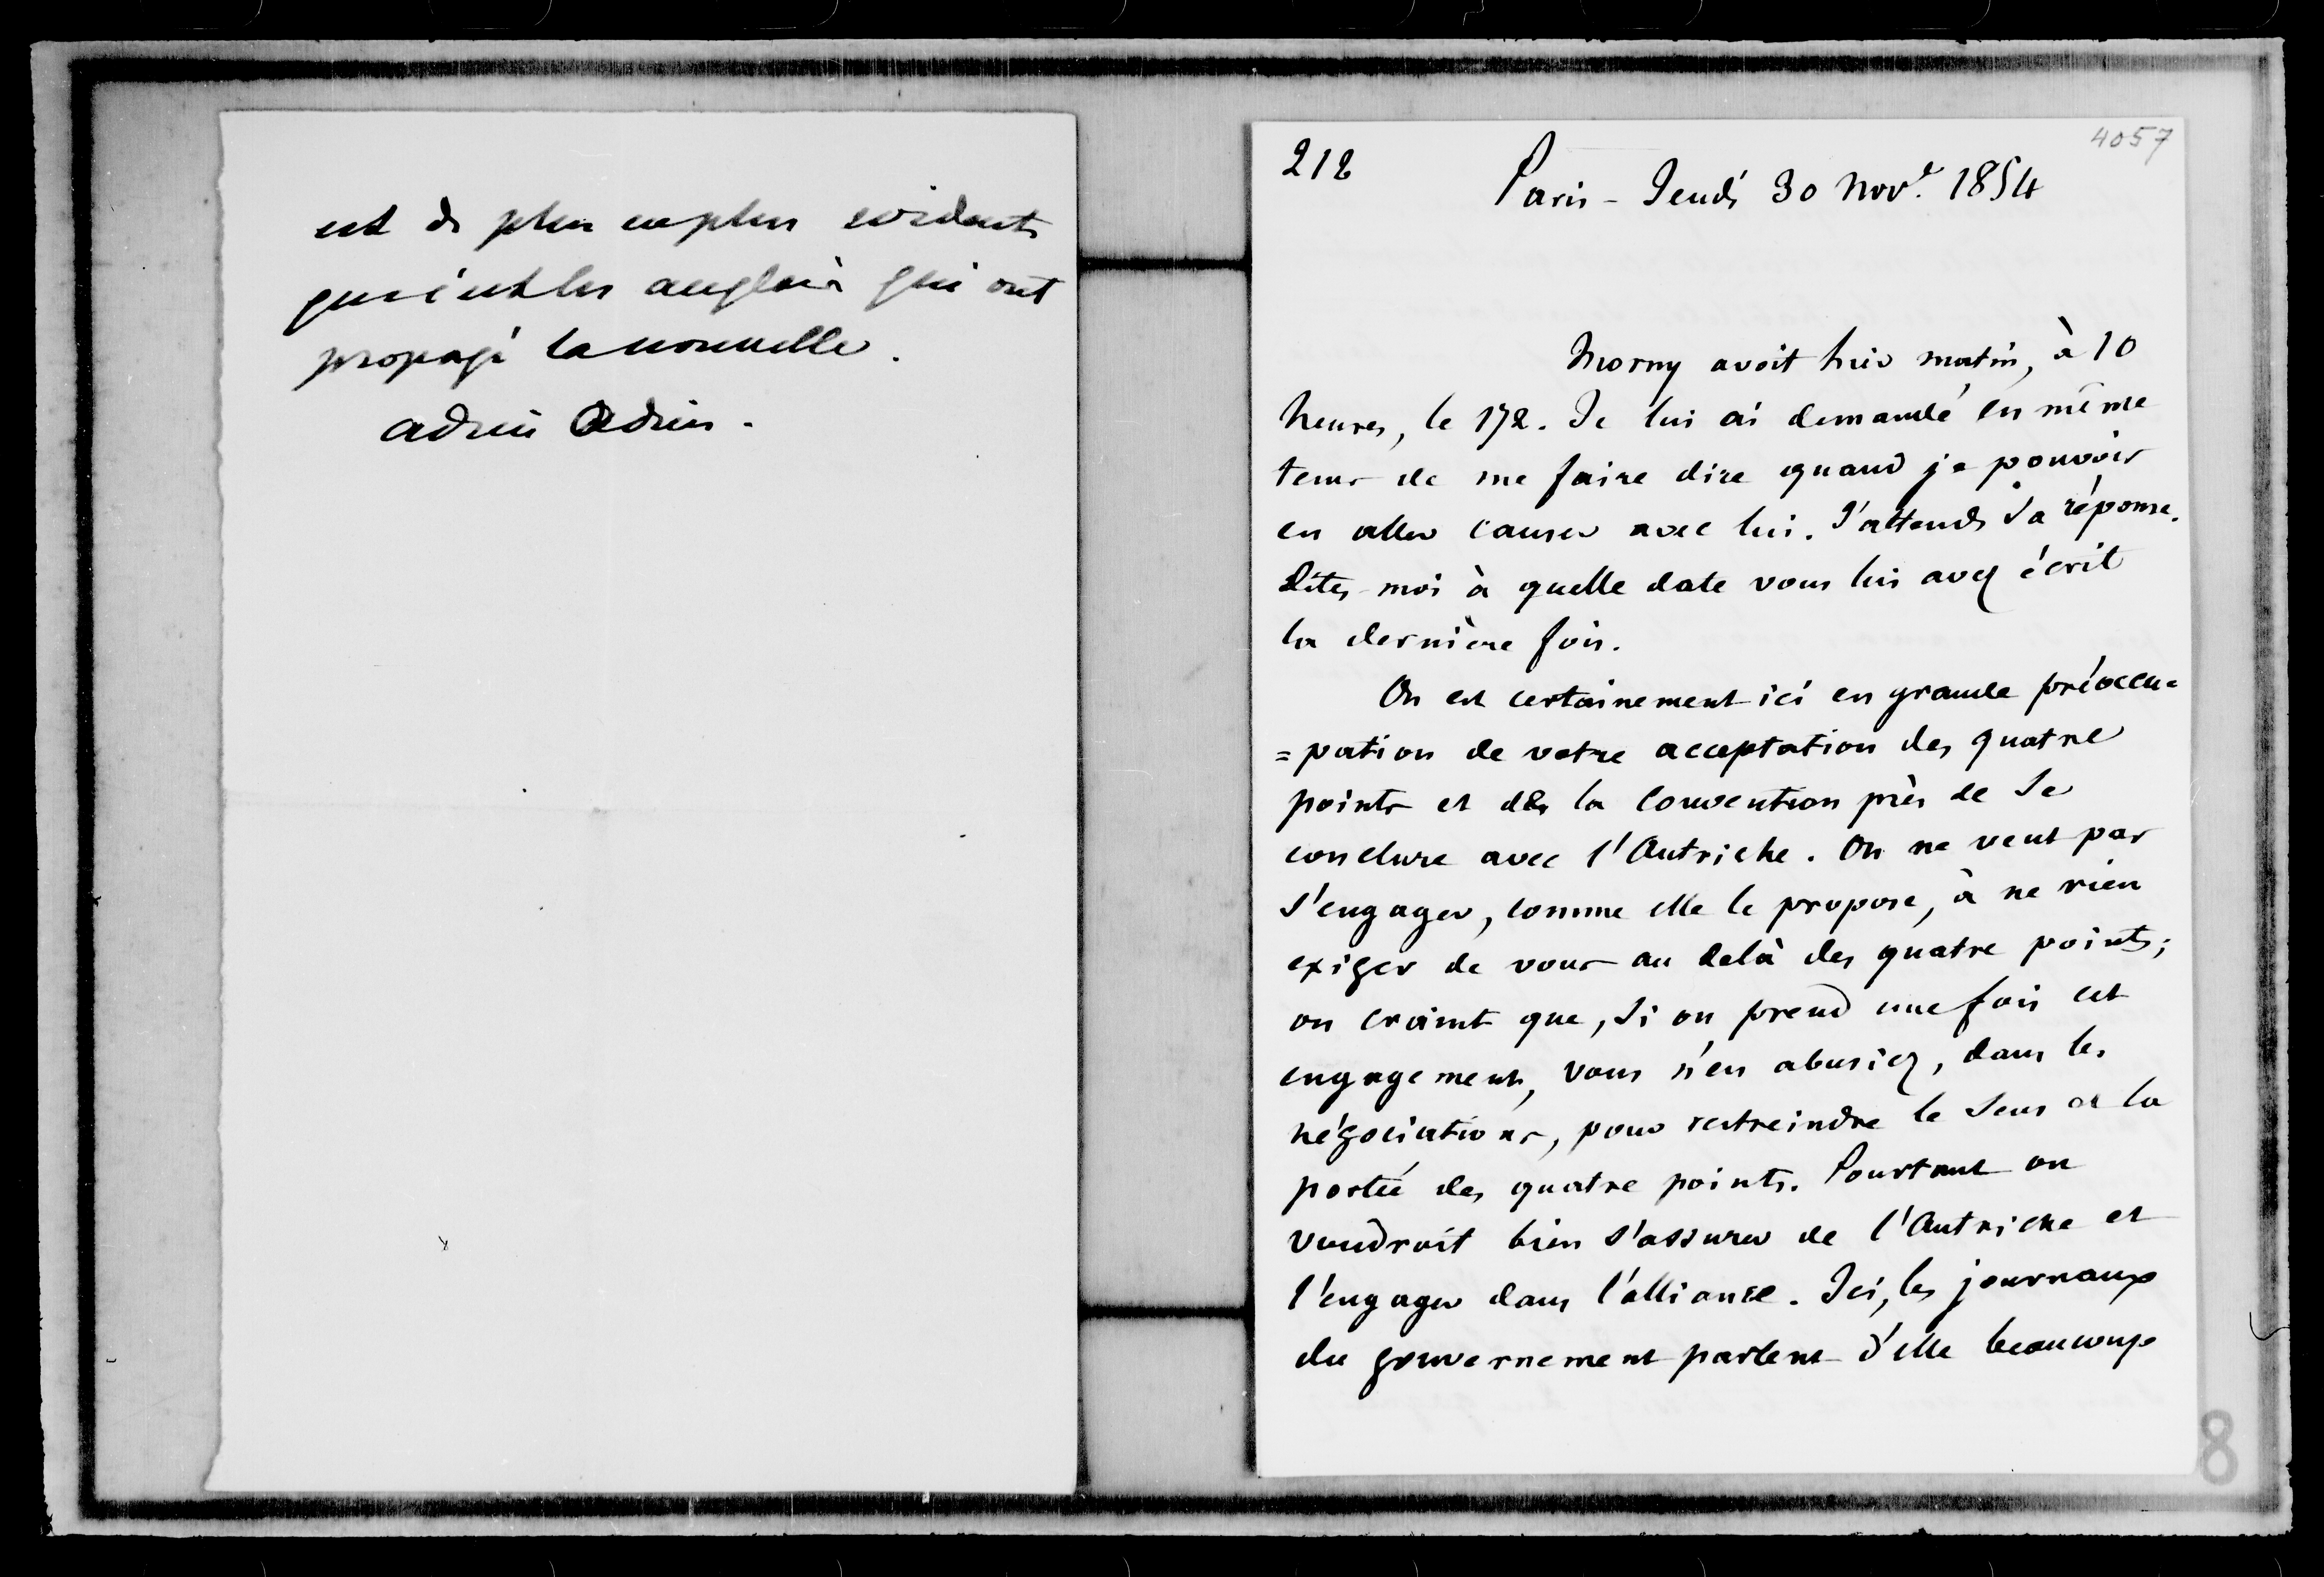 est de plus en plus evidents
que c'est les anglais qui ont
propagé la nouvelle.
adieu Adieu.
4057
212
Paris - Jeudi 30 Nov.e 1854
Morny avoit hier matin, à 10
heures, le 172. Je lui ai demandé en même
tems de me faire dire quand je pouvois
en aller causer avec lui. J'attends sa réponse.
Dites-moi à quelle date vous lui avez écrit
la dernière fois.
On est certainement ici en grande préoccu=
=pation de votre acceptation des quatre
points et de la convention près de se
conclure avec l'Autriche. On ne veut pas
s'engager, comme elle le propose, à ne rien
exiger de vous au delà des quatre points;
on craint que, si on prend une fois cet
engagement, vous n'en abusiez, dans les
négociations, pour restreindre le sens et la
portée des quatre points. Pourtant on
voudroit bien s'assurer de l'Autriche et
l'engager dans l'alliance. Ici, les journaux
du gouvernement parlent d'elle beaucoup
8